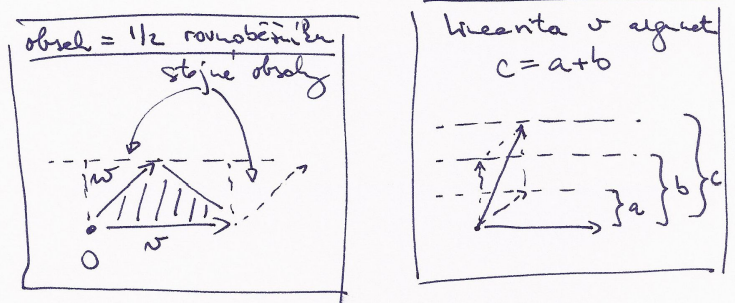 obsah = 1/2 rovnoběžníku
stejné obsahy
w
v
O
Linearita v argumentu
c = a+b
a
b
c